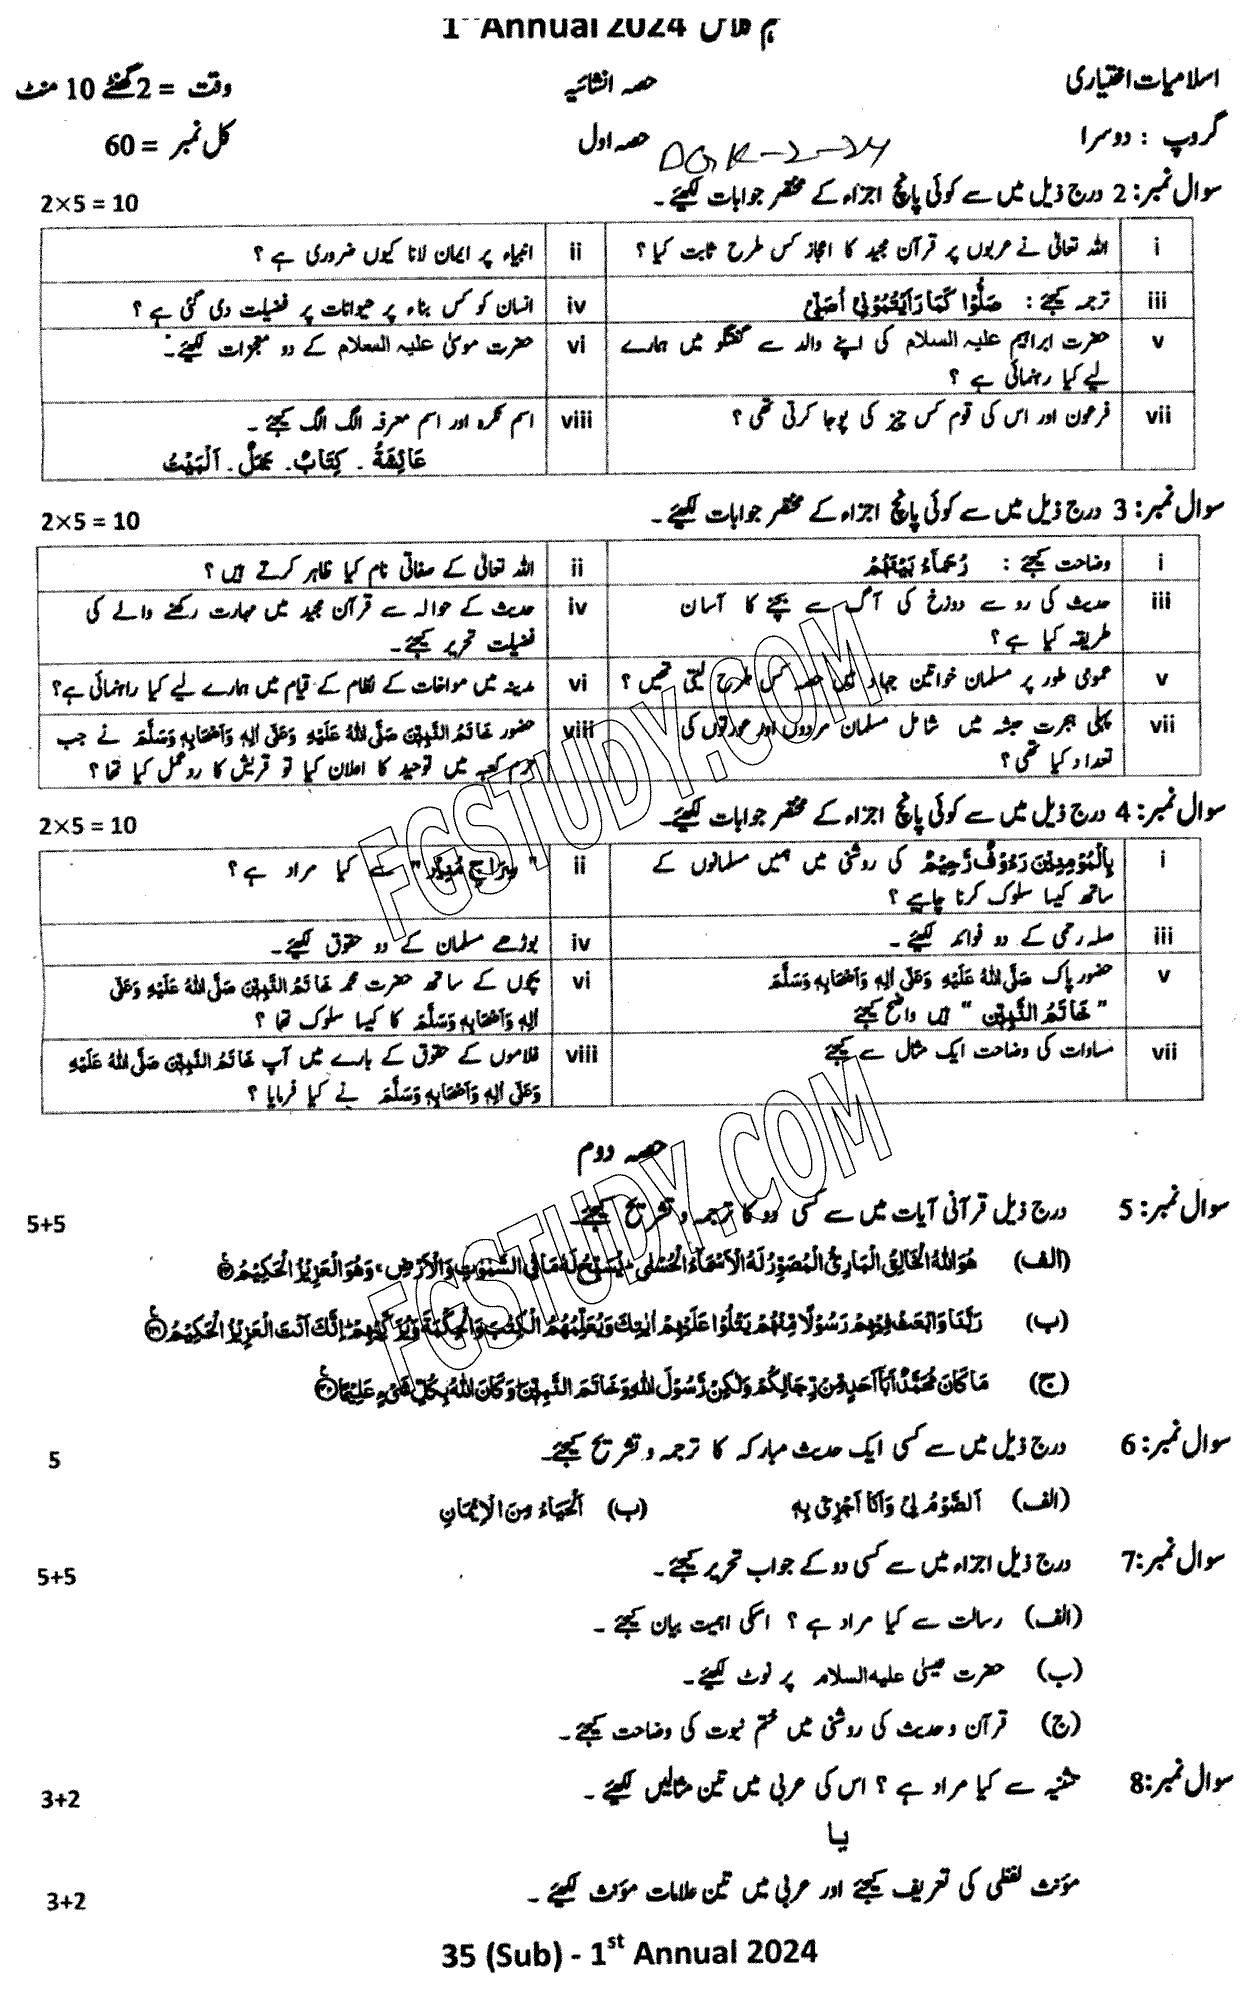 1st Annual 2024
اسلامیات اختیاری حصہ انشائیہ وقت = 2 گھنٹے 10 منٹ
گروپ : دوسرا حصہ اول کل نمبر = 60
DGK-2-24
سوال نمبر: 2 درج ذیل میں سے کوئی پانچ اجزاء کے مختصر جوابات لکھیئے۔ 2×5 = 10
i اللہ تعالٰی نے عربوں پر قرآن مجید کا اعجاز کس طرح ثابت کیا؟ ii انبیاء پر ایمان لانا کیوں ضروری ہے ؟
iii ترجمہ کیجئے : صَلُّوْا كَمَا رَاَيْتُمُوْنِيْ اُصَلِّيْ iv انسان کو کس بناء پر حیوانات پر فضیلت دی گئی ہے ؟
v حضرت ابراہیم علیہ السلام کی اپنے والد سے گفتگو میں ہمارے vi حضرت موسیٰ علیہ السلام کے دو معجزات لکھیئے۔
لیے کیا رہنمائی ہے ؟
vii فرعون اور اس کی قوم کس چیز کی پوجا کرتی تھی ؟ viii اسم نکرہ اور اسم معرفہ الگ الگ کیجئے ۔
عَائِشَةُ ۔ كِتَابٌ۔ جَمَلٌ۔ اَلْبَيْتُ
سوال نمبر: 3 درج ذیل میں سے کوئی پانچ اجزاء کے مختصر جوابات لکھیئے ۔ 2×5 = 10
i وضاحت کیجئے : رُحَمَآءُ بَيْنَهُمْ ii اللہ تعالٰی کے صفاتی نام کیا ظاہر کرتے ہیں ؟
iii حدیث کی رو سے دوزخ کی آگ سے بچنے کا آسان iv حدیث کے حوالہ سے قرآن مجید میں مہارت رکھنے والے کی
طریقہ کیا ہے ؟ فضیلت تحریر کیجئے۔
v عمومی طور پر مسلمان خواتین جہاد میں حصہ کس طرح لیتی تھیں ؟ vi مدینہ میں مواخات کے نظام کے قیام میں ہمارے لیے کیا راہنمائی ہے؟
vii پہلی ہجرت حبشہ میں شامل مسلمان مردوں اور عورتوں کی viii حضور خَاتَمُ النَّبِيّٖنَ صَلَّى اللهُ عَلَيْهِ وَعَلٰى اٰلِهٖ وَاَصْحَابِهٖ وَسَلَّمَ نے جب
تعداد کیا تھی ؟ حرم کعبہ میں توحید کا اعلان کیا تو قریش کا ردعمل کیا تھا ؟
سوال نمبر: 4 درج ذیل میں سے کوئی پانچ اجزاء کے مختصر جوابات لکھیئے۔ 2×5 = 10
i بِالْمُؤْمِنِيْنَ رَءُوْفٌ رَّحِيْمٌ کی روشنی میں ہمیں مسلمانوں کے ii "سِرَاجٍ مُّنِيْرٍ" سے کیا مراد ہے ؟
ساتھ کیسا سلوک کرنا چاہیے ؟
iii صلہ رحمی کے دو فوائد لکھیئے ۔ iv بوڑھے مسلمان کے دو حقوق لکھیئے۔
v حضور پاک صَلَّى اللهُ عَلَيْهِ وَعَلٰى اٰلِهٖ وَاَصْحَابِهٖ وَسَلَّمَ vi بچوں کے ساتھ حضرت محمد خَاتَمُ النَّبِيّٖنَ صَلَّى اللهُ عَلَيْهِ وَعَلٰى
"خَاتَمُ النَّبِيّٖنَ" ہیں واضح کیجئے اٰلِهٖ وَاَصْحَابِهٖ وَسَلَّمَ کا کیسا سلوک تھا ؟
vii مساوات کی وضاحت ایک مثال سے کیجئے viii غلاموں کے حقوق کے بارے میں آپ خَاتَمُ النَّبِيّٖنَ صَلَّى اللهُ عَلَيْهِ
وَعَلٰى اٰلِهٖ وَاَصْحَابِهٖ وَسَلَّمَ نے کیا فرمایا ؟
حصہ دوم
سوال نمبر: 5 درج ذیل قرآنی آیات میں سے کسی دو کا ترجمہ و تشریح کیجئے۔ 5+5
(الف) هُوَ اللهُ الْخَالِقُ الْبَارِئُ الْمُصَوِّرُ لَهُ الْاَسْمَآءُ الْحُسْنٰى ؕ يُسَبِّحُ لَهٗ مَا فِي السَّمٰوٰتِ وَالْاَرْضِ ۚ وَهُوَ الْعَزِيْزُ الْحَكِيْمُ
(ب) رَبَّنَا وَابْعَثْ فِيْهِمْ رَسُوْلًا مِّنْهُمْ يَتْلُوْا عَلَيْهِمْ اٰيٰتِكَ وَيُعَلِّمُهُمُ الْكِتٰبَ وَالْحِكْمَةَ وَيُزَكِّيْهِمْ ؕ اِنَّكَ اَنْتَ الْعَزِيْزُ الْحَكِيْمُ
(ج) مَا كَانَ مُحَمَّدٌ اَبَآ اَحَدٍ مِّنْ رِّجَالِكُمْ وَلٰكِنْ رَّسُوْلَ اللهِ وَخَاتَمَ النَّبِيّٖنَ ؕ وَكَانَ اللهُ بِكُلِّ شَيْءٍ عَلِيْمًا
سوال نمبر: 6 درج ذیل میں سے کسی ایک حدیث مبارکہ کا ترجمہ و تشریح کیجئے۔ 5
(الف) اَلصَّوْمُ لِيْ وَاَنَا اَجْزِيْ بِهٖ (ب) اَلْحَيَاءُ مِنَ الْاِيْمَانِ
سوال نمبر:7 درج ذیل اجزاء میں سے کسی دو کے جواب تحریر کیجئے۔ 5+5
(الف) رسالت سے کیا مراد ہے ؟ اسکی اہمیت بیان کیجئے ۔
(ب) حضرت عیسیٰ علیہ السلام پر نوٹ لکھیئے۔
(ج) قرآن و حدیث کی روشنی میں ختم نبوت کی وضاحت کیجئے۔
سوال نمبر:8 تثنیہ سے کیا مراد ہے ؟ اس کی عربی میں تین مثالیں لکھیئے ۔ 3+2
یا
مؤنث لفظی کی تعریف کیجئے اور عربی میں تین علامات مؤنث لکھیئے ۔ 3+2
35 (Sub) - 1st Annual 2024
FGSTUDY.COM
FGSTUDY.COM